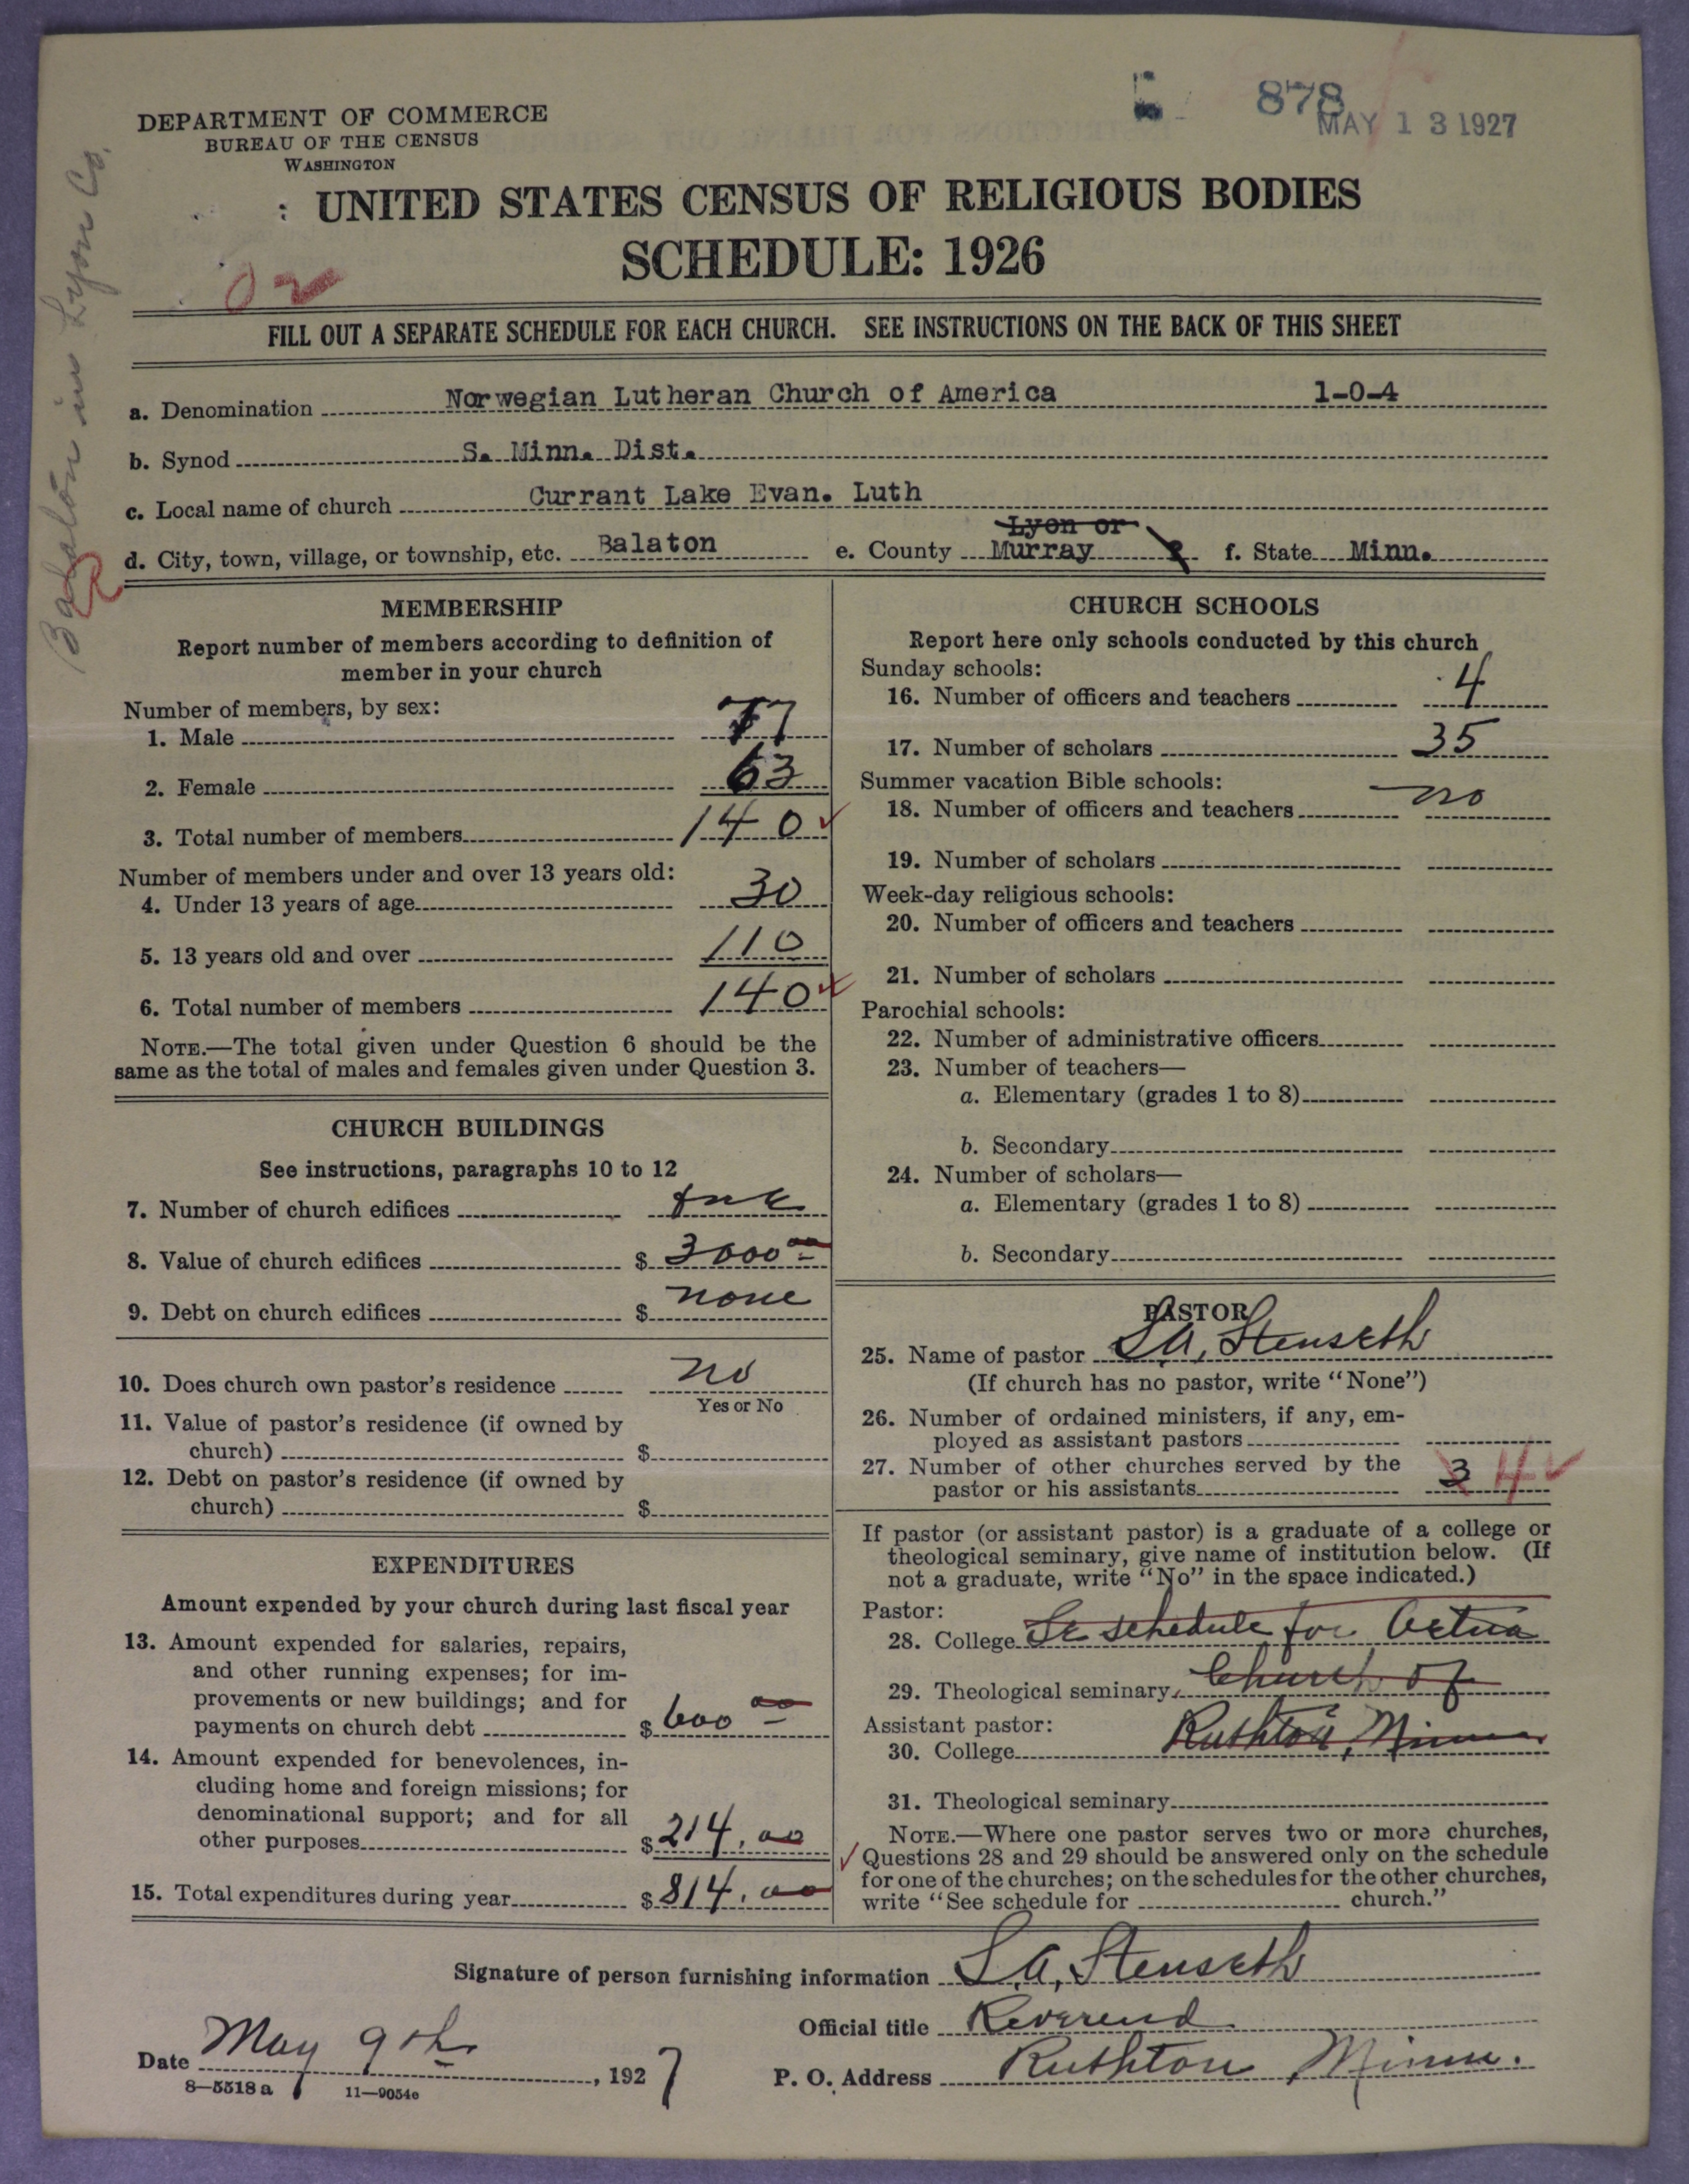 878
MAY 13 1927
DEPARTMENT OF COMMERCE
BUREAU OF THE CENSUS
WASHINGTON
UNITED STATES CENSUS OF RELIGIOUS BODIES
SCHEDULE: 1926
02
Balaton in Lyon Co.
R
FILL OUT A SEPARATE SCHEDULE FOR EACH CHURCH. SEE INSTRUCTIONS ON THE BACK OF THIS SHEET
a. Denomination Norwegian Lutheran Church of America 1-0-4
b. Synod S. Minn. Dist.
c. Local name of church Currant Lake Evan. Luth
Lyon or
d. City, town, village, or township, etc. Balaton e. County Murray ? f. State Minn.
MEMBERSHIP
Report number of members according to definition of
member in your church
Number of members, by sex:
1. Male 77
2. Female 63
3. Total number of members 140
Number of members under and over 13 years old:
4. Under 13 years of age 30
5. 13 years old and over 110
6. Total number of members 140
NOTE.—The total given under Question 6 should be the
same as the total of males and females given under Question 3.
CHURCH BUILDINGS
See instructions, paragraphs 10 to 12
7. Number of church edifices one
8. Value of church edifices $ 3000 00
9. Debt on church edifices $ none
10. Does church own pastor's residence no
Yes or No
11. Value of pastor's residence (if owned by
church) $
12. Debt on pastor's residence (if owned by
church) $
EXPENDITURES
Amount expended by your church during last fiscal year
13. Amount expended for salaries, repairs,
and other running expenses; for im-
provements or new buildings; and for
payments on church debt $ 600 00
14. Amount expended for benevolences, in-
cluding home and foreign missions; for
denominational support; and for all
other purposes $ 214.00
15. Total expenditures during year $ 814.00
CHURCH SCHOOLS
Report here only schools conducted by this church
Sunday schools:
16. Number of officers and teachers 4
17. Number of scholars 35
Summer vacation Bible schools:
18. Number of officers and teachers no
19. Number of scholars
Week-day religious schools:
20. Number of officers and teachers
21. Number of scholars
Parochial schools:
22. Number of administrative officers
23. Number of teachers—
a. Elementary (grades 1 to 8)
b. Secondary
24. Number of scholars—
a. Elementary (grades 1 to 8)
b. Secondary
PASTOR
25. Name of pastor S.A. Stenseth
(If church has no pastor, write "None")
26. Number of ordained ministers, if any, em-
ployed as assistant pastors
27. Number of other churches served by the
pastor or his assistants 3 4
If pastor (or assistant pastor) is a graduate of a college or
theological seminary, give name of institution below. (If
not a graduate, write "No" in the space indicated.)
Pastor:
28. College Se schedule for Aetna
29. Theological seminary Church of
Assistant pastor:
30. College Ruthton, Minn
31. Theological seminary
NOTE.—Where one pastor serves two or more churches,
Questions 28 and 29 should be answered only on the schedule
for one of the churches; on the schedules for the other churches,
write "See schedule for church."
Signature of person furnishing information S.A. Stenseth
Official title Reverend
Date May 9th, 1927
P. O. Address Ruthton, Minn.
8—5518 a 11—9054e